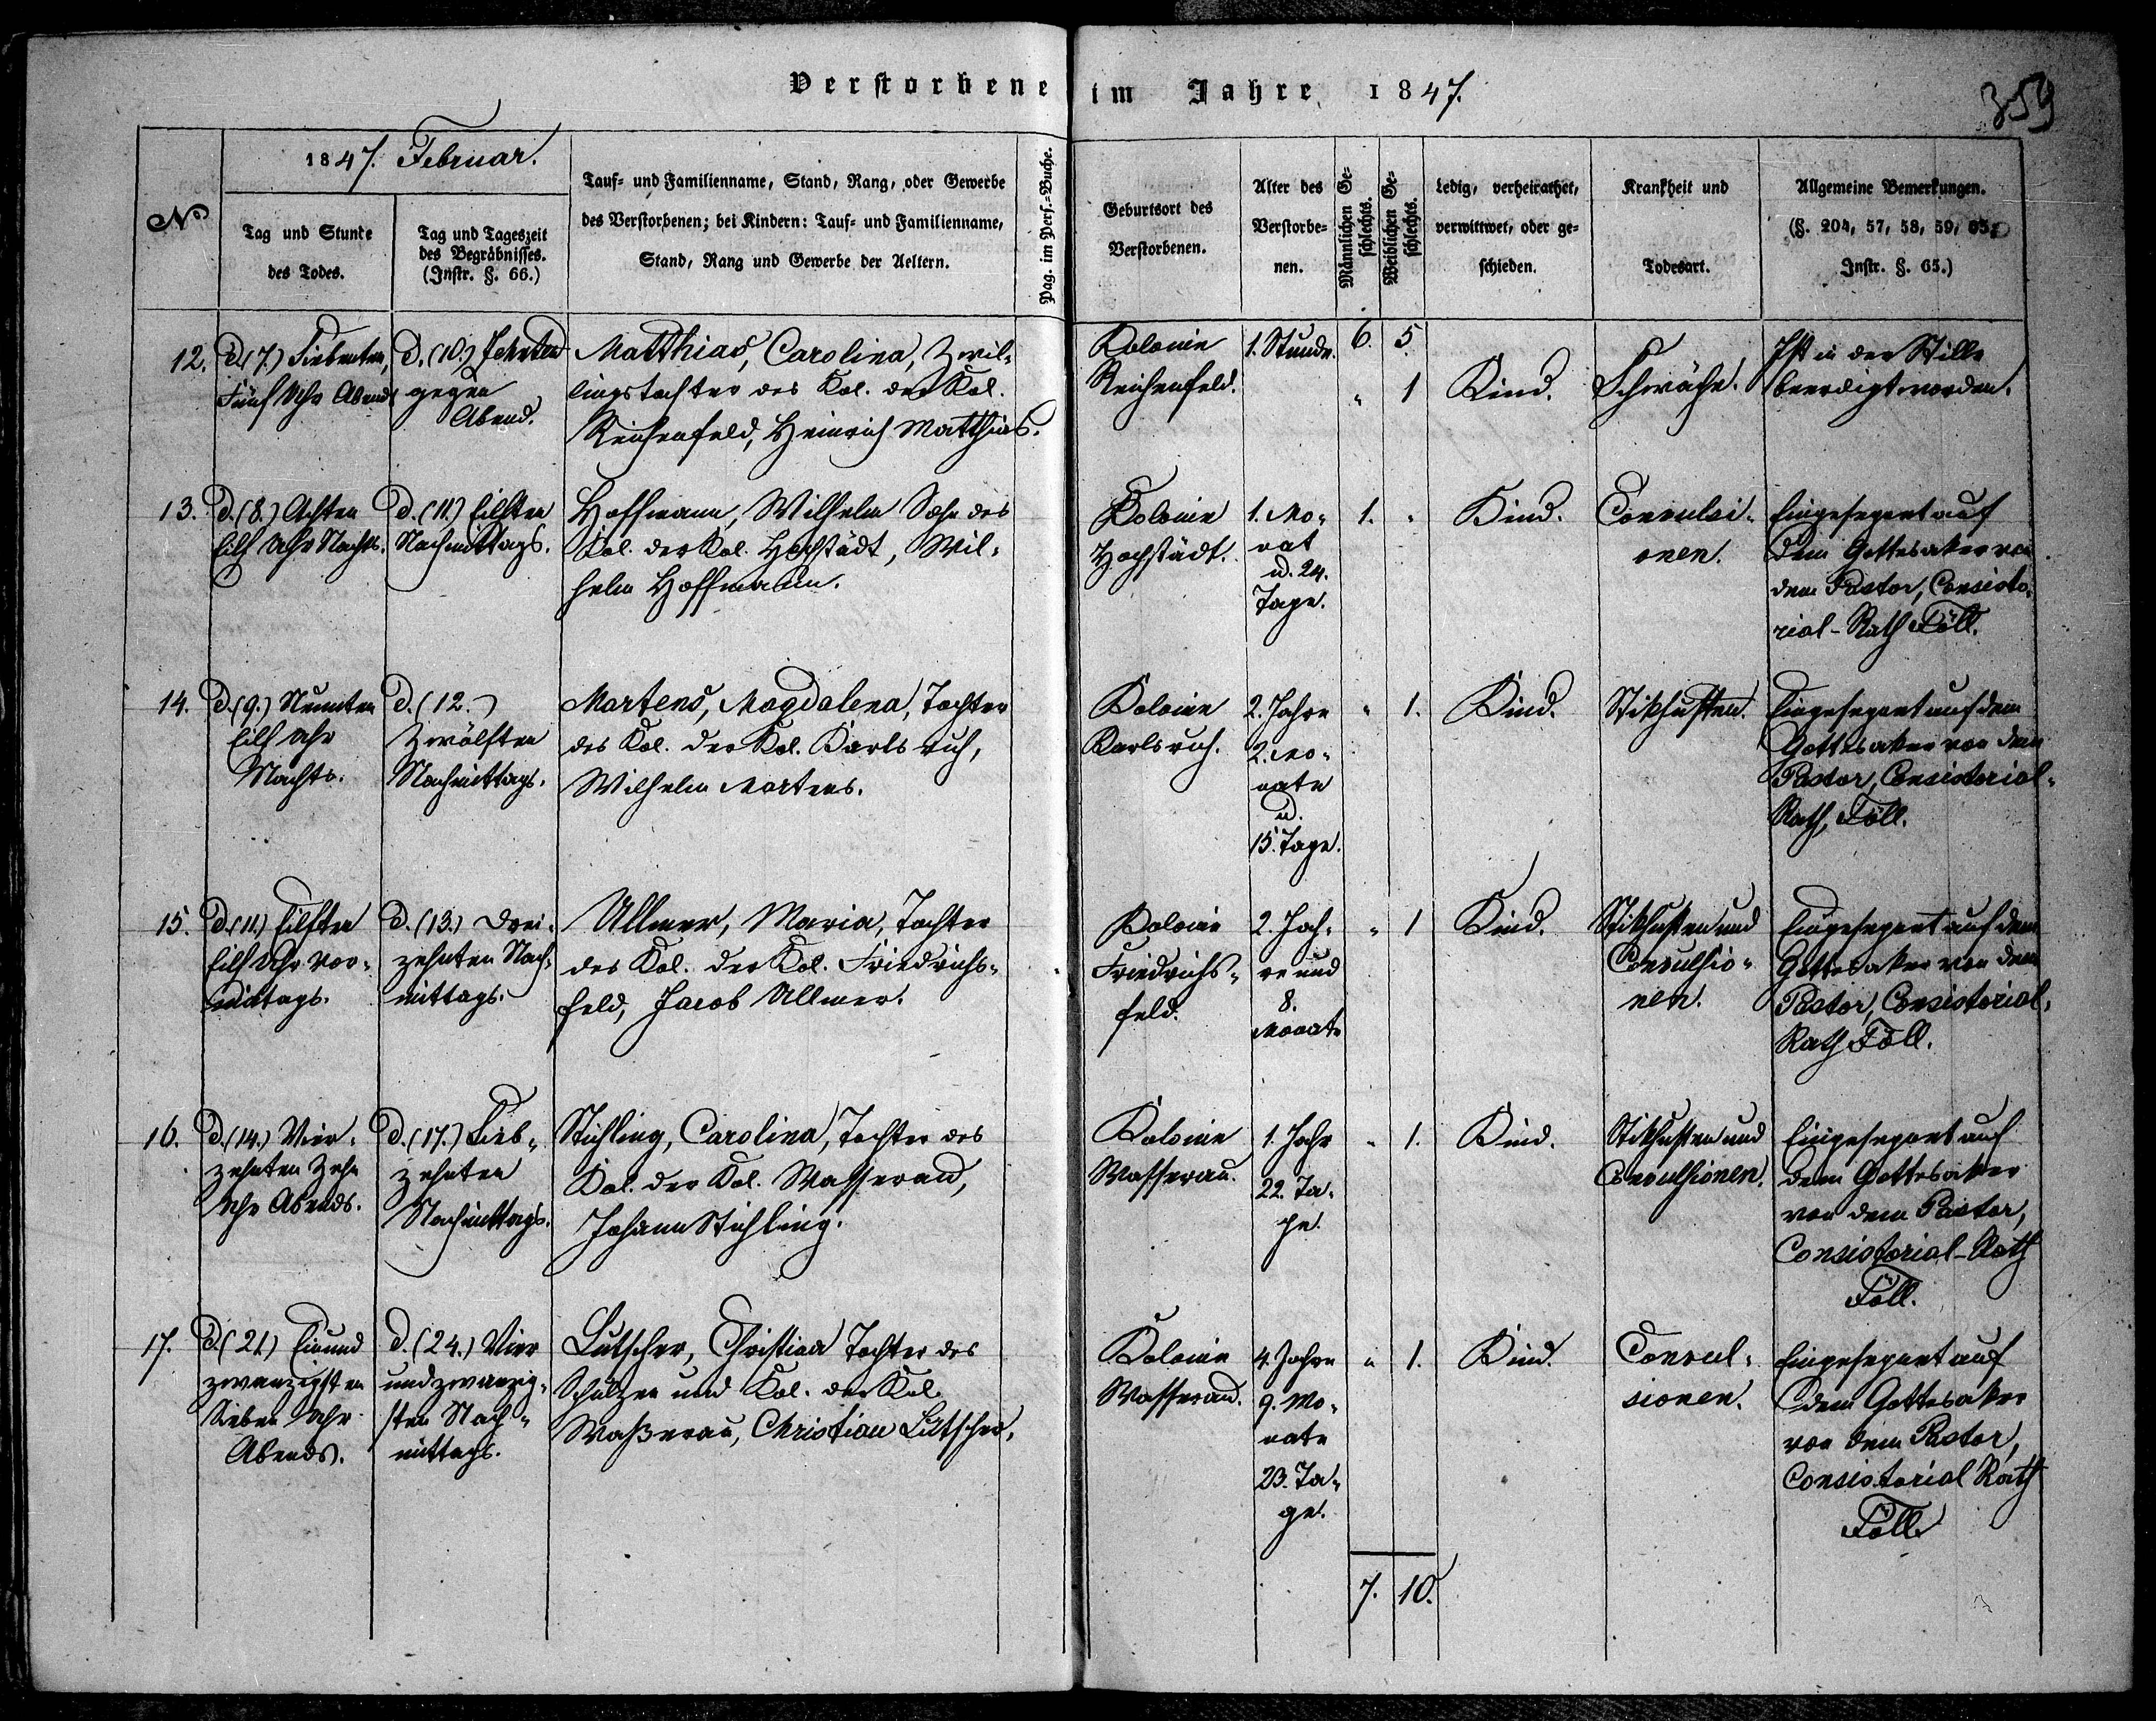 Verstorbene im Jahre 1847.
359
No
1847. Februar.
Tag und Stunde
des Todes.
Tag und Tageszeit
des Begräbnisses.
(Instr. §. 66.)
Tauf- und Familienname, Stand, Rang, oder Gewerbe
des Verstorbenen; bei Kindern: Tauf- und Familienname,
Stand, Rang und Gewerbe der Aeltern.
Pag. im Pers.-Buche.
Geburtsort des
Verstorbenen.
Alter des
Verstorbe-
nen.
Männlichen Ge-
schlechts.
Weiblichen Ge-
schlechts.
Ledig, verheirathet,
verwittwet, oder ge-
schieden.
Krankheit und
Todesart.
Allgemeine Bemerkungen.
(§. 204, 57, 58, 59, 65,
Instr. §. 65.)
12.
d. (7.) Siebenten,
Fünf Uhr Abends
d. (10.) Zehnten
gegen
Abend.
Matthias, Carolina, Zwil-
lingstochter des Kol. der Kol.
Reichenfeld, Heinrich Matthias.
Kolonie
Reichenfeld.
1. Stunde.
6. 5.
" 1
Kind.
Schwäche.
Ist in der Stille
beerdigt worden.
13.
d. (8.) Achten
Eilf Uhr Nachts.
d. (11.) Eilften
Nachmittags.
Hoffmann, Wilhelm Sohn des
Kol. der Kol. Hochstädt, Wil-
helm Hoffmann.
Kolonie
Hochstädt.
1. Mo-
nat
u. 24.
Tage.
1. "
Kind.
Convulsi-
onen.
Eingesegnet auf
dem Gottesaker von
dem Pastor, Consisto-
rial-Rath Föll.
14.
d. (9.) Neunten
Eilf Uhr
Nachts.
d. (12.)
Zwölften
Nachmittags.
Martens, Magdalena, Tochter
des Kol. der Kol. Karlsruh,
Wilhelm Martens.
Kolonie
Karlsruh.
2. Jahre
2. Mo-
nate
u.
15. Tage.
" 1.
Kind.
Stikhusten.
Eingesegnet auf dem
Gottesaker von dem
Pastor, Consistorial-
Rath, Föll.
15.
d. (11.) Eilften
Eilf Uhr Vor-
mittags.
d. (13.) Drei-
zehnten Nach-
mittags.
Ullmer, Maria, Tochter
des Kol. der Kol. Friedrichs-
feld, Jacob Ullmer.
Kolonie
Friedrichs-
feld.
2. Jah-
re und
8.
Monate
" 1
Kind.
Stikhusten und
Convulsio-
nen.
Eingesegnet auf dem
Gottesaker von dem
Pastor, Consistorial-
Rath Föll.
16.
d. (14.) Vier-
zehnten Zehn
Uhr Abends.
d. (17.) Sieb-
zehnten
Nachmittags.
Stichling, Carolina, Tochter des
Kol. der Kol. Wasserau,
Johann Stichling.
Kolonie
Wasserau.
1. Jahr
22. Ta-
ge.
" 1.
Kind.
Stikhusten und
Convulsionen.
Eingesegnet auf
dem Gottesaker
von dem Pastor,
Consistorial-Rath
Föll.
17.
d. (21.) Einund
zwanzigsten
Sieben Uhr
Abends.
d. (24.) Vier
und zwanzig-
sten Nach-
mittags.
Lutscher, Christina Tochter des
Schulzen und Kol. der Kol.
Waßerau, Christian Lutscher.
Kolonie
Wasserau.
4. Jahre
9. Mo-
nate
23. Ta-
ge.
" 1.
Kind.
Convul-
sionen.
Eingesegnet auf
dem Gottesaker
von dem Pastor,
Consistorial Rath
Föll.
7. 10.